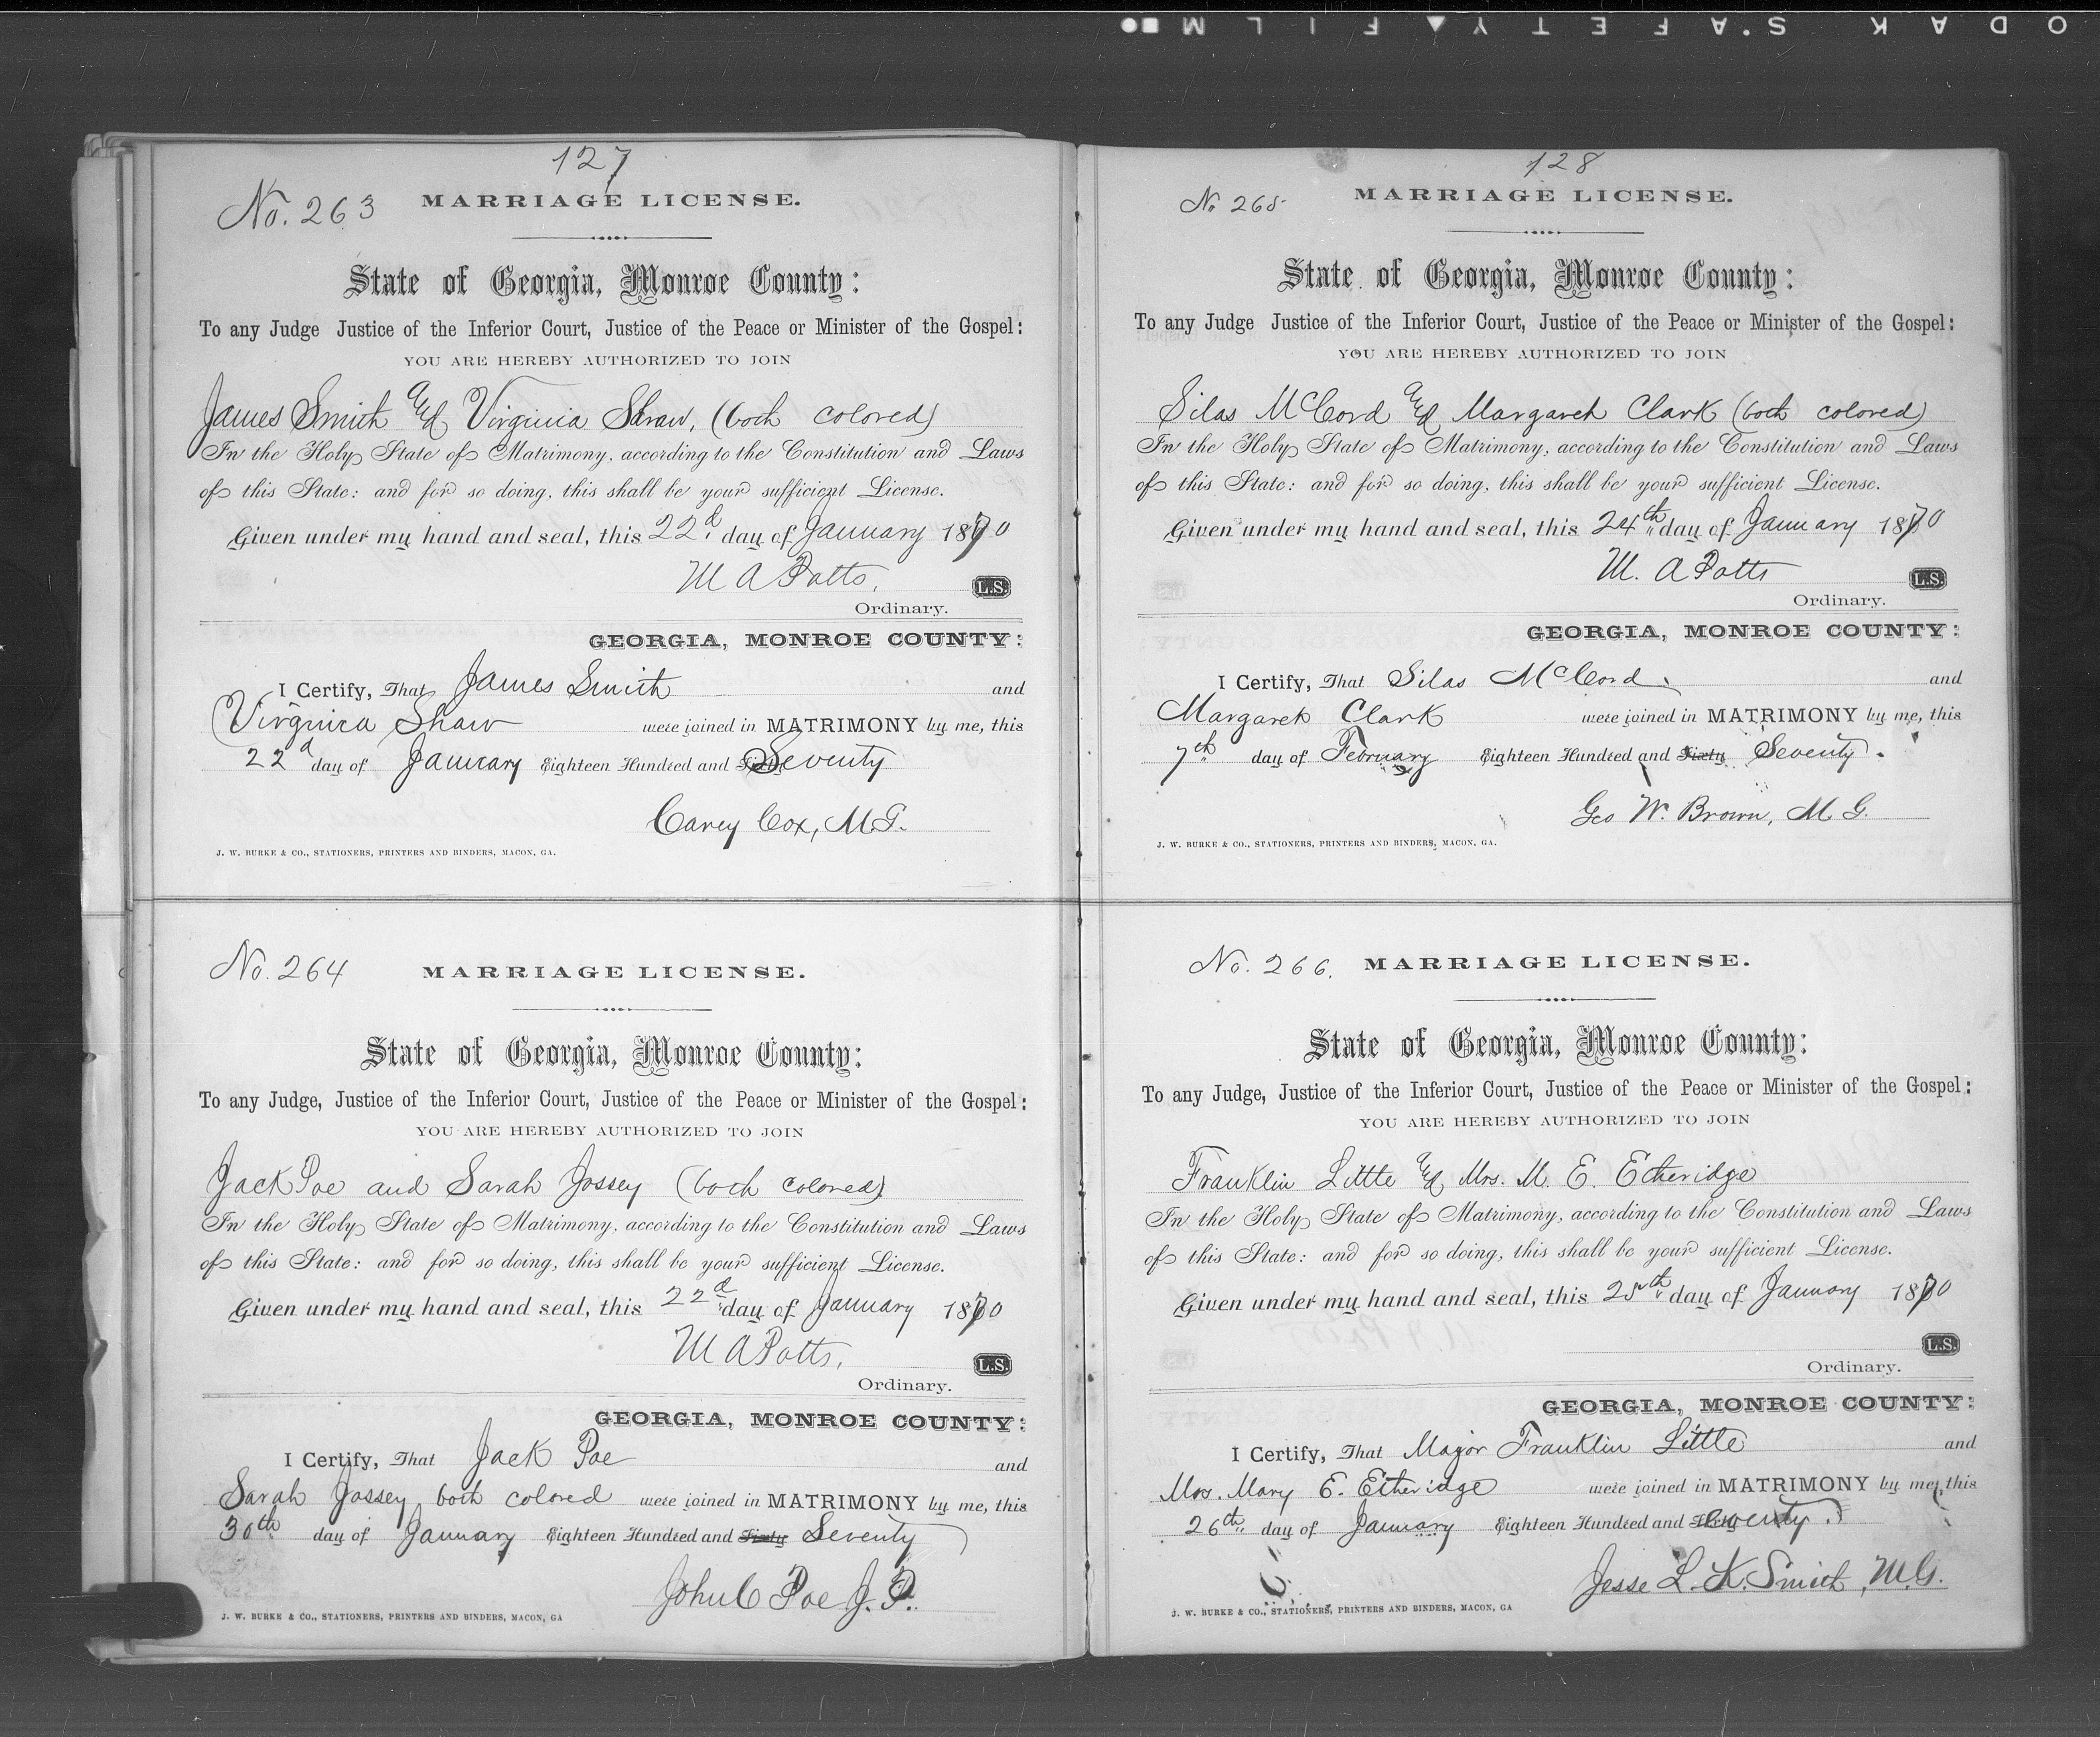 KODAK SAFETY FILM
127
No. 263 MARRIAGE LICENSE.
State of Georgia, Monroe County:
To any Judge Justice of the Inferior Court, Justice of the Peace or Minister of the Gospel:
YOU ARE HEREBY AUTHORIZED TO JOIN
James Smith and Virginia Shaw, (both colored)
In the Holy State of Matrimony, according to the Constitution and Laws
of this State: and for so doing, this shall be your sufficient License.
Given under my hand and seal, this 22d. day of January 1870
M A Potts, L.S.
Ordinary.
GEORGIA, MONROE COUNTY:
I Certify, That James Smith and
Virginia Shaw were joined in MATRIMONY by me, this
22d day of January Eighteen Hundred and Sixty Seventy
Carey Cox, M.G.
J. W. BURKE & CO., STATIONERS, PRINTERS AND BINDERS, MACON, GA.
No. 264 MARRIAGE LICENSE.
State of Georgia, Monroe County:
To any Judge, Justice of the Inferior Court, Justice of the Peace or Minister of the Gospel:
YOU ARE HEREBY AUTHORIZED TO JOIN
Jack Poe and Sarah Jossey (both colored)
In the Holy State of Matrimony, according to the Constitution and Laws
of this State: and for so doing, this shall be your sufficient License.
Given under my hand and seal, this 22d day of January 1870
M A Potts, L.S.
Ordinary.
GEORGIA, MONROE COUNTY:
I Certify, That Jack Poe and
Sarah Jossey both colored were joined in MATRIMONY by me, this
30th day of January Eighteen Hundred and Sixty Seventy
John C Poe J.P.
J. W. BURKE & CO., STATIONERS, PRINTERS AND BINDERS, MACON, GA
128
No 265 MARRIAGE LICENSE.
State of Georgia, Monroe County:
To any Judge Justice of the Inferior Court, Justice of the Peace or Minister of the Gospel:
YOU ARE HEREBY AUTHORIZED TO JOIN
Silas McCord and Margaret Clark (both colored)
In the Holy State of Matrimony, according to the Constitution and Laws
of this State: and for so doing, this shall be your sufficient License.
Given under my hand and seal, this 24th day of January 1870
M. A Potts L.S.
Ordinary.
GEORGIA, MONROE COUNTY:
I Certify, That Silas McCord and
Margaret Clark were joined in MATRIMONY by me, this
7th day of February Eighteen Hundred and Sixty Seventy.
Geo W. Brown, M.G.
J. W. BURKE & CO., STATIONERS, PRINTERS AND BINDERS, MACON, GA.
No. 266. MARRIAGE LICENSE.
State of Georgia, Monroe County:
To any Judge, Justice of the Inferior Court, Justice of the Peace or Minister of the Gospel:
YOU ARE HEREBY AUTHORIZED TO JOIN
Franklin Little and Mrs. M. E. Etheridge
In the Holy State of Matrimony, according to the Constitution and Laws
of this State: and for so doing, this shall be your sufficient License.
Given under my hand and seal, this 25th day of January 1870
L.S.
Ordinary.
GEORGIA, MONROE COUNTY:
I Certify, That Major Franklin Little and
Mrs. Mary E. Etheridge were joined in MATRIMONY by me, this
26th day of January Eighteen Hundred and Seventy.
Jesse L. K. Smith, M.G.
J. W. BURKE & CO., STATIONERS, PRINTERS AND BINDERS, MACON, GA